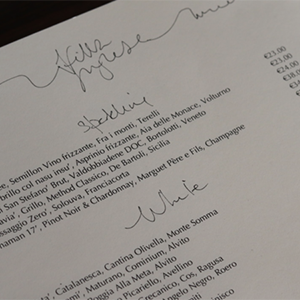 Villa
Inglese
wine
Sparkling
Semillon Vino frizzante, Fra i monti, Terelli €21.00
brilio col nasu insu', Asprinio frizzante, Aia delle Monace, Volturno €23.00
San Stefano' Brut, Valdobbiadene DOC, Bortolotti, Veneto €24.00
Grillo, Method Classico, De Bartoli, Sicilia
ssaggio Zero', Solouva, Franciacorta
naman 17', Pinot Noir & Chardonnay, Marguet Père e Fils, Champagne
White
Catalanesca, Cantina Olivella, Monte Somma
Maturano, Cominium, Alvito
oggia Alla Meta, Alvito
a Picariello, Avellino
Crecanico, Cos, Ragusa
Angelo Negro, Roero